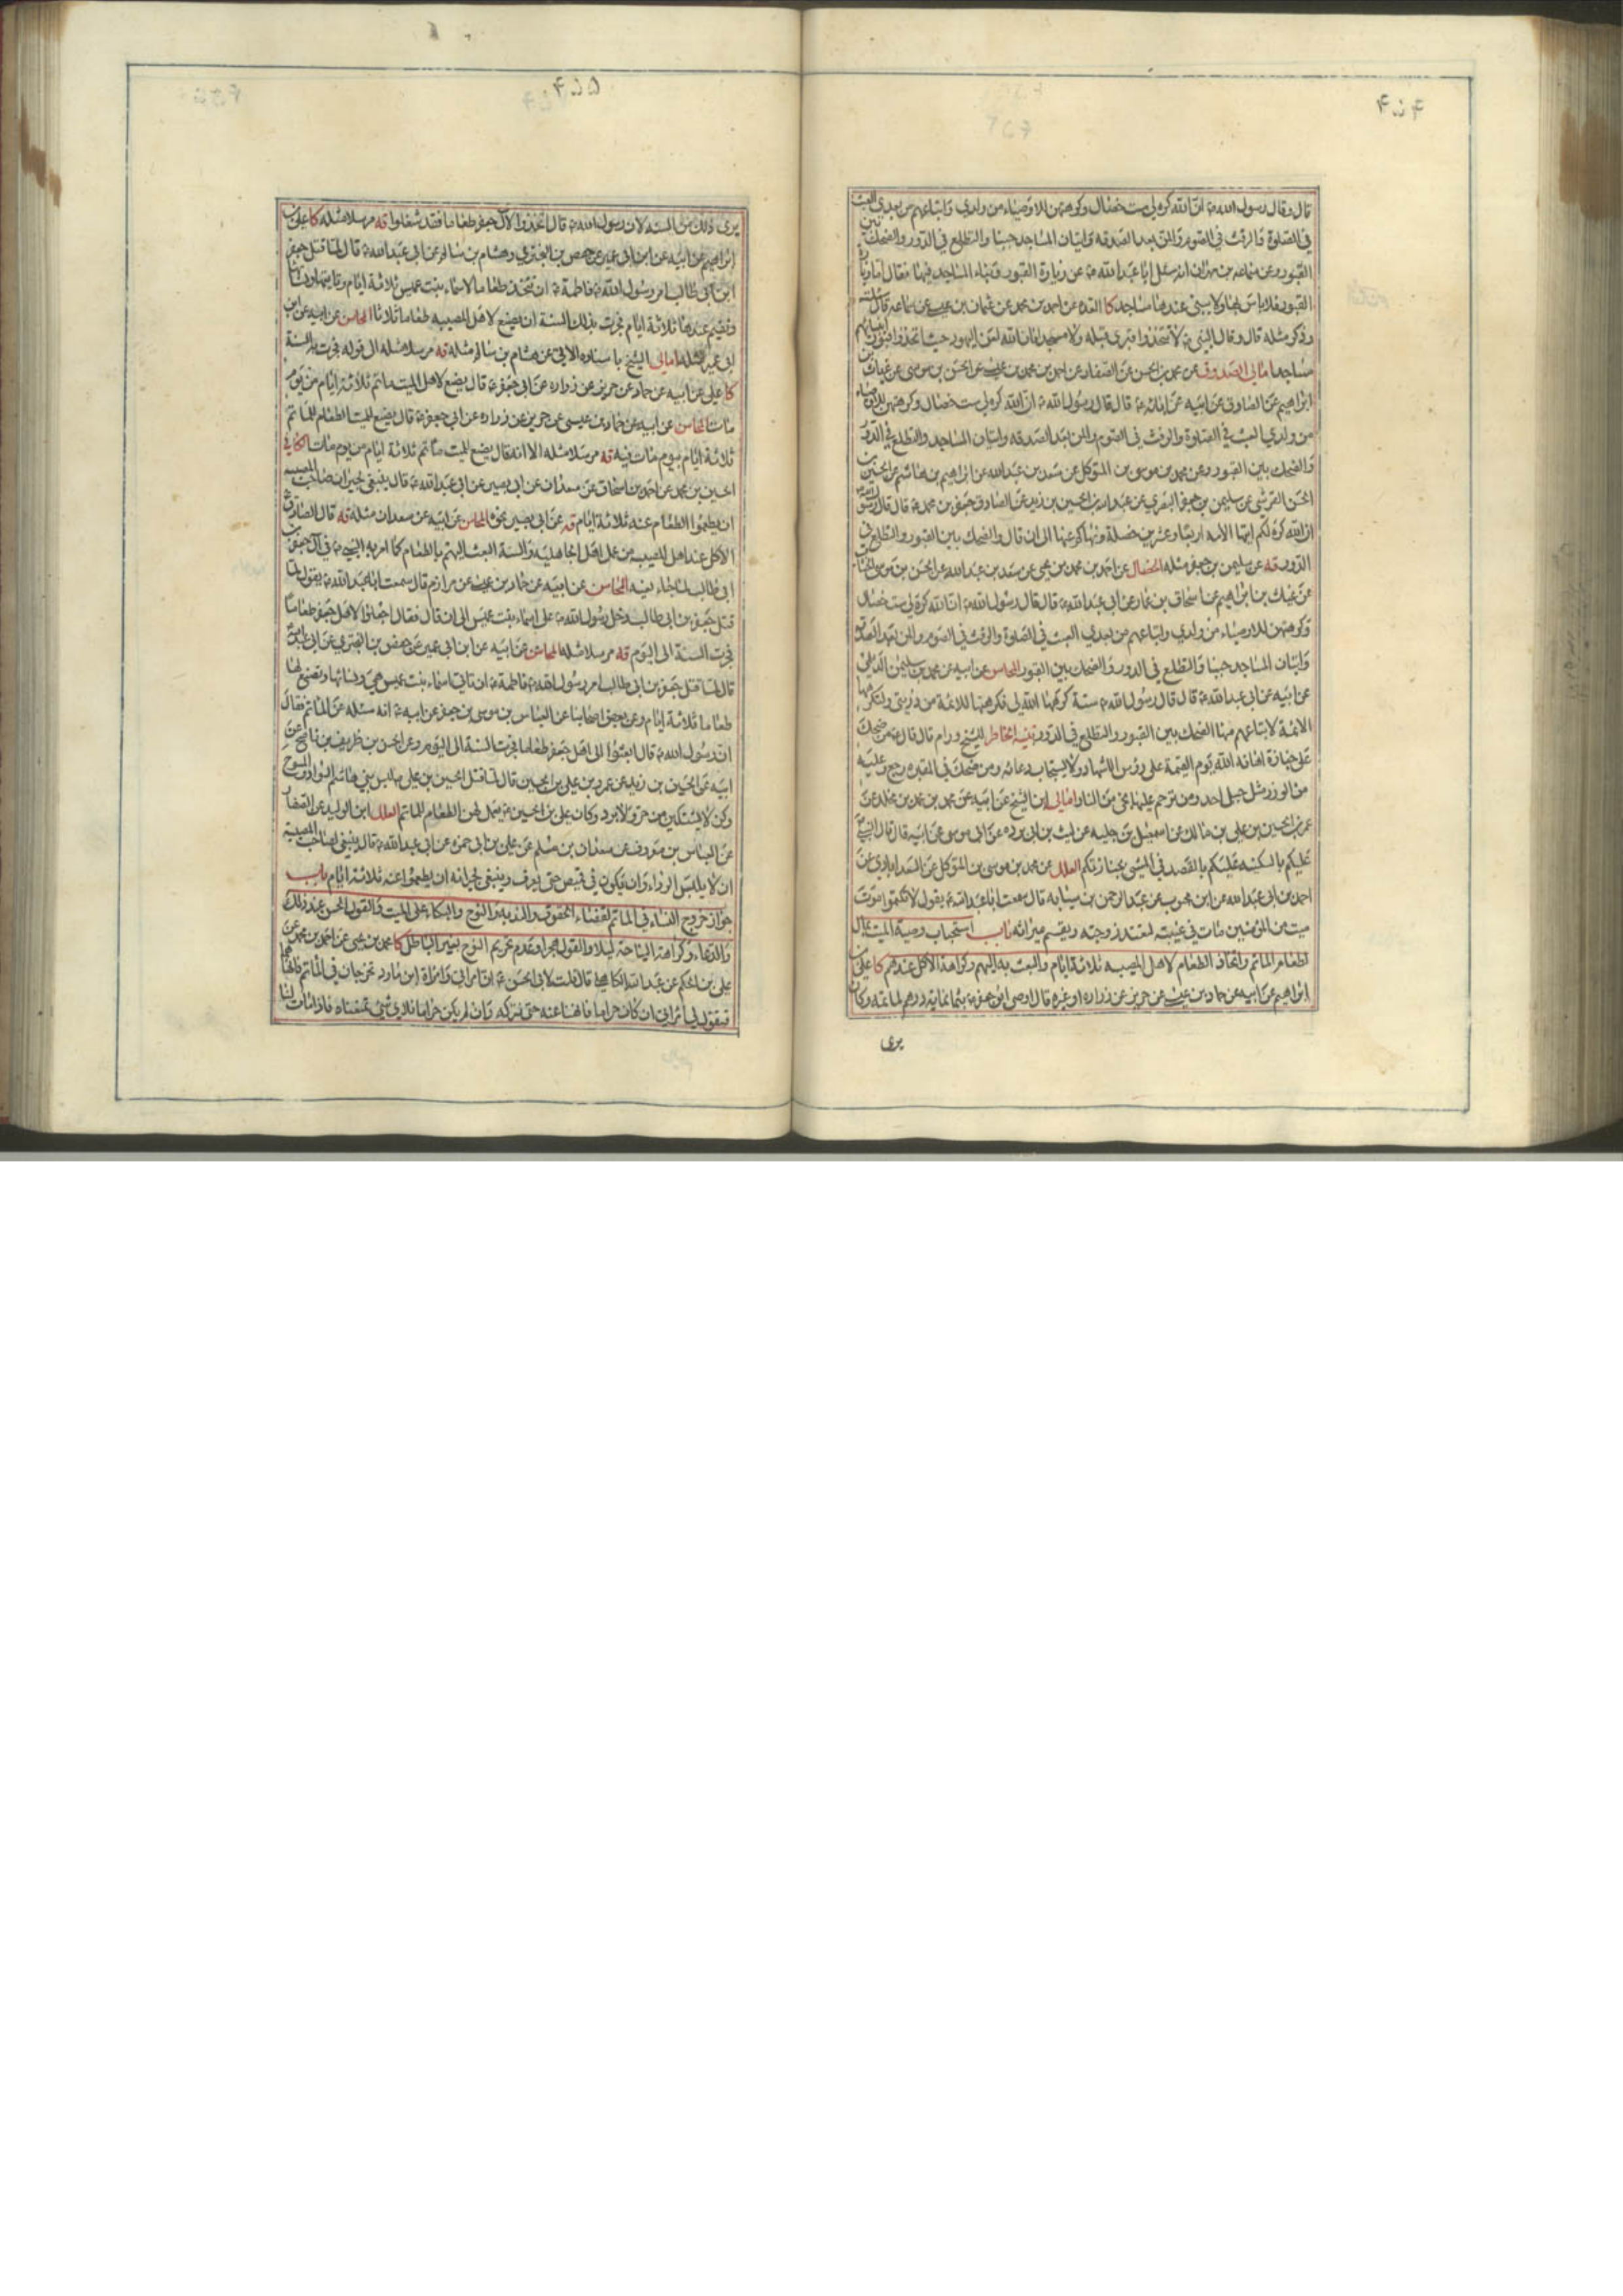 ۴۵۴
قال وقال رسول الله ص ان الله كره لي ست خصال وكرهتهن للاوصياء من ولدي واتباعهم من بعدي العبث
في الصلوة والرفث في الصوم والمن بعد الصدقه واتيان المساجد جنبا والتطلع في الدور والضحك بين
القبور وعن سماعه بن مهران انه سئل ابا عبد الله ع عن زيارة القبور وبناء المساجد فيها فقال اما زيارة
القبور فلا باس بها ولا يبنى عندها مساجد كا العده عن احمد بن محمد عن عثمان بن عيسى عن سماعه قال سئلته
وذكر مثله قال وقال النبي ص لا تتخذوا قبري قبله ولا مسجدا فان الله لعن اليهود حيث اتخذوا قبور انبيائهم
مساجد امالي الصدوق عن محمد بن الحسن عن الصفار عن احمد بن محمد بن عن الحسن بن موسى عن غياث بن
ابراهيم عن الصادق عن ابائه ع قال قال رسول الله ص ان الله كره لي ست خصال وكرهتهن للاوصياء
من ولدي العبث في الصلوة والرفث في الصوم والمن بعد الصدقه واتيان المساجد والتطلع في الدور
والضحك بين القبور وعن محمد بن موسى بن المتوكل عن سعد بن عبد الله عن ابراهيم بن هاشم عن الحسين بن
الحسن القرشي عن سليمن بن جعفر البصري عن عبد الله بن الحسين بن زيد عن الصادق جعفر بن محمد ع قال قال رسول الله ص
ان الله كره لكم ايتها الامه اربعا وعشرين خصلة ونهاكم عنها الى ان قال والضحك بين القبور والتطلع في
الدور قه عن سليمن بن جعفر مثله الخصال عن احمد بن محمد بن يحيى عن سعد بن عبد الله عن الحسن بن موسى الخشاب
عن غياث بن ابراهيم عن اسحاق بن عمار عن ابي عبد الله ع قال قال رسول الله ص ان الله كره لي ست خصال
وكرهتهن للاوصياء من ولدي واتباعهم من بعدي العبث في الصلوة والرفث في الصوم والمن بعد الصدقه
واتيان المساجد جنبا والتطلع في الدور والضحك بين القبور المحاسن عن ابيه عن محمد بن سليمن الديلمي
عن ابيه عن ابي عبد الله ع قال قال رسول الله ص ستة كرهها الله لي فكرهتها للائمة من ذريتي ولتكرهها
الائمة لاتباعهم منها الضحك بين القبور والتطلع في الدور تنبيه الخاطر للشيخ ورام قال قال ع من ضحك
على جنازة اهانه الله يوم القيمة على رؤس الاشهاد ولا يستجاب دعائه ومن ضحك في المقبره رجع وعليه
من الوزر مثل جبل احد ومن ترحم عليهم نجى من النار امالي ابن الشيخ عن ابيه عن محمد بن محمد بن مخلد عن
عمر بن الحسين بن علي بن مالك عن اسمعيل بن عن ليث بن ابي برده عن ابي موسى عن ابيه قال قال النبي ص
عليكم بالسكينه عليكم بالقصد في المشي بجنازتكم العلل عن محمد بن موسى بن المتوكل عن السعدابادي عن
احمد بن ابي عبد الله عن ابن محبوب عن عبد الرحمن بن سيابه قال سمعت ابا عبد الله ع يقول لا تكتموا موت
ميت من المؤمنين مات في غيبته لتعتد زوجته ويقسم ميراثه باب استحباب وصية الميت بمال
لطعام الماتم واتخاذ الطعام لاهل المصيبه ثلاثة ايام والبعث به اليهم وكراهة الاكل عندهم كا علي بن
ابراهيم عن ابيه عن حماد بن عيسى عن حريز عن زراره او غيره قال اوصى ابو جعفر ع بثمانمايه درهم لماتمه وكان
يرى
۴۵۵
يرى ذلك من السنه لان رسول الله ص قال اتخذوا لال جعفر طعاما فقد شغلوا قه مرسلا مثله كا علي بن
ابراهيم عن ابيه عن ابن ابي عمير عن حفص بن البختري وهشام بن سالم عن ابي عبد الله ع قال لما قتل جعفر
ابن ابي طالب امر رسول الله ص فاطمة ع ان تتخذ طعاما لاسماء بنت عميس ثلاثة ايام وتاتيها ونسائها
وتقيم عندها ثلاثة ايام فجرت بذلك السنة ان يصنع لاهل المصيبه طعاما ثلاثا المحاسن عن ابيه عن ابن
ابي عمير مثله امالي الشيخ باسناده الاتي عن هشام بن سالم مثله قه مرسلا مثله الى قوله فجرت به السنة
كا علي عن ابيه عن حماد عن حريز عن زراره عن ابي جعفر ع قال يصنع لاهل الميت ماتم ثلاثة ايام من يوم
مات المحاسن عن ابيه عن حماد بن عيسى عن حريز عن زراره عن ابي جعفر ع قال يصنع للميت الطعام للماتم
ثلاثة ايام بيوم مات فيه قه مرسلا مثله الا انه قال يصنع للميت ماتم ثلاثة ايام من يوم مات الكافي
الحسين بن محمد عن احمد بن اسحاق عن سعدان عن ابي بصير عن ابي عبد الله ع قال ينبغي لجيران صاحب المصيبه
ان يطعموا الطعام عنه ثلاثة ايام قه عن ابي بصير نحوه المحاسن عن ابيه عن سعدان مثله قه قال الصادق ع
الاكل عند اهل المصيبه من عمل اهل الجاهليه والسنة البعث اليهم بالطعام كما امر به النبي ص في ال جعفر بن
ابي طالب لما جاء نعيه المحاسن عن ابيه عن حماد بن عيسى عن مرازم قال سمعت ابا عبد الله ع يقول لما
قتل جعفر بن ابي طالب دخل رسول الله ص على اسماء بنت عميس الى ان قال فقال اجعلوا لاهل جعفر طعاما
فجرت السنة الى اليوم قه مرسلا مثله المحاسن عن ابيه عن ابن ابي عمير عن حفص بن البختري عن ابي عبد الله ع
قال لما قتل جعفر بن ابي طالب امر رسول الله ص فاطمة ع ان تاتي اسماء بنت عميس هي ونسائها وتصنع لها
طعاما ثلاثة ايام وعن بعض اصحابنا عن العباس بن موسى بن جعفر عن ابيه ع انه سئله عن الماتم فقال
ان رسول الله ص قال ابعثوا الى اهل جعفر طعاما فجرت السنة الى اليوم وعن الحسن بن ظريف بن ناصح عن
ابيه عن الحسين بن زيد عن عمر بن علي بن الحسين قال لما قتل الحسين بن علي ع لبس نساء بني هاشم السواد والمسوح
وكن لا يشتكين من حر ولا برد وكان علي بن الحسين ع يعمل لهن الطعام للماتم العلل ابن الوليد عن الصفار
عن العباس بن معروف عن سعدان بن مسلم عن علي بن ابي حمزه عن ابي عبد الله ع قال ينبغي لصاحب المصيبة
ان لا يلبس الرداء وان يكون في قميص حتى يعرف وينبغي لجيرانه ان يطعموا عنه ثلاثة ايام باب
جواز خروج النساء في الماتم لقضاء الحقوق والندبه والنوح والبكاء على الميت والقول الحسن عند ذلك
والدعاء وكراهة النياحة ليلا والقول هجرا وعدم تحريم النوح بغير الباطل كا محمد بن يحيى عن احمد بن محمد عن
علي بن الحكم عن عبد الله الكاهلي قال قلت لابي الحسن ع ان امراتي وامراة ابن مارد تخرجان في الماتم فانهاهما
فتقول لي امراتي ان كان حراما فانهنا عنه حتى نتركه وان لم يكن حراما فلاي شئ تمنعناه فاذا مات لنا